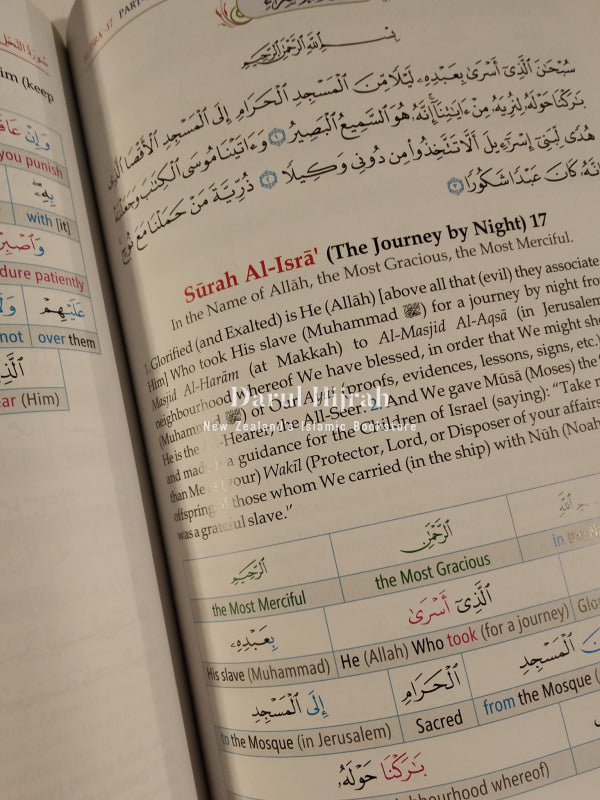 im (keep
وَإِنْ عَاقَ
you punish
بِهِۦ
with [it]
وَٱصْبِرْ
dure patiently
عَلَيْهِمْ
وَلَا
not
over them
ٱلَّذِ
ear (Him)
PART
بِسْمِ ٱللَّهِ ٱلرَّحْمَٰنِ ٱلرَّحِيمِ
سُبْحَٰنَ ٱلَّذِىٓ أَسْرَىٰ بِعَبْدِهِۦ لَيْلًا مِّنَ ٱلْمَسْجِدِ ٱلْحَرَامِ إِلَى ٱلْمَسْجِدِ ٱلْأَقْصَا ٱلَّذِى
بَٰرَكْنَا حَوْلَهُۥ لِنُرِيَهُۥ مِنْ ءَايَٰتِنَآ إِنَّهُۥ هُوَ ٱلسَّمِيعُ ٱلْبَصِيرُ ١ وَءَاتَيْنَا مُوسَى ٱلْكِتَٰبَ وَجَعَلْنَٰهُ
هُدًى لِّبَنِىٓ إِسْرَٰٓءِيلَ أَلَّا تَتَّخِذُوا۟ مِن دُونِى وَكِيلًا ٢ ذُرِّيَّةَ مَنْ حَمَلْنَا مَعَ نُوحٍ
إِنَّهُۥ كَانَ عَبْدًا شَكُورًا ٣
Sūrah Al-Isrā' (The Journey by Night) 17
In the Name of Allāh, the Most Gracious, the Most Merciful.
1. Glorified (and Exalted) is He (Allāh) [above all that (evil) they associate
Him] Who took His slave (Muhammad ﷺ) for a journey by night from
Masjid Al-Harām (at Makkah) to Al-Masjid Al-Aqsā (in Jerusalem
neighbourhood whereof We have blessed, in order that We might sho
(Muhammad ﷺ) of Our Ayāt (proofs, evidences, lessons, signs, etc.)
He is the All-Hearer, the All-Seer. 2. And We gave Mūsā (Moses) the
and made it a guidance for the Children of Israel (saying): "Take n
than Me as (your) Wakīl (Protector, Lord, or Disposer of your affairs
offspring of those whom We carried (in the ship) with Nūh (Noah
was a grateful slave."
Darul Hijrah
New Zealand's Islamic Bookstore
ٱلرَّحِيمِ
ٱلرَّحْمَٰنِ
the Most Merciful
the Most Gracious
in the Na
بِعَبْدِهِۦ
ٱلَّذِىٓ أَسْرَىٰ
His slave (Muhammad)
He (Allah) Who took (for a journey)
Glor
إِلَى ٱلْمَسْجِدِ
ٱلْحَرَامِ
ٱلْمَسْجِدِ
to the Mosque (in Jerusalem)
Sacred
from the Mosque (
بَٰرَكْنَا حَوْلَهُۥ
hbourhood whereof)